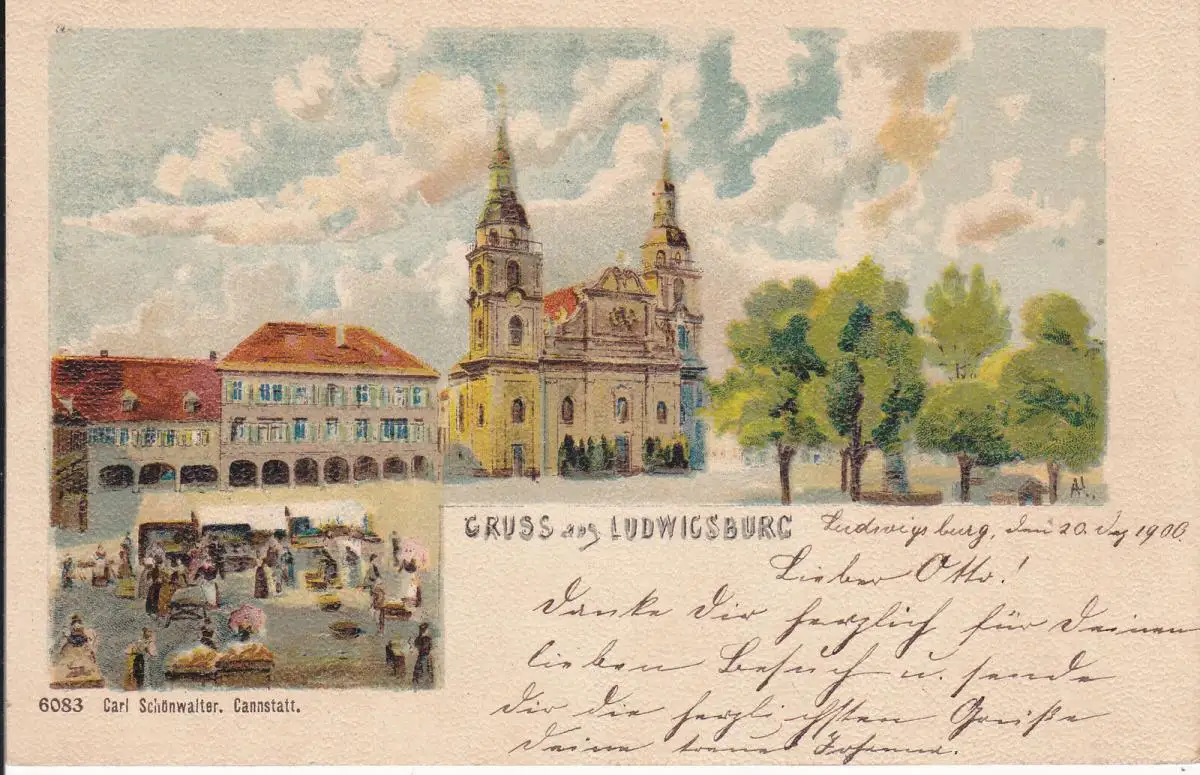 GRUSS aus LUDWIGSBURG
Ludwigsburg, den 20. Dez 1900.
Lieber Otto!
Danke Dir herzlich für Deinen
lieben Besuch u. sende
Dir die herzlichsten Grüße
Deine treue Johanna.
6083 Carl Schönwalter. Cannstatt.